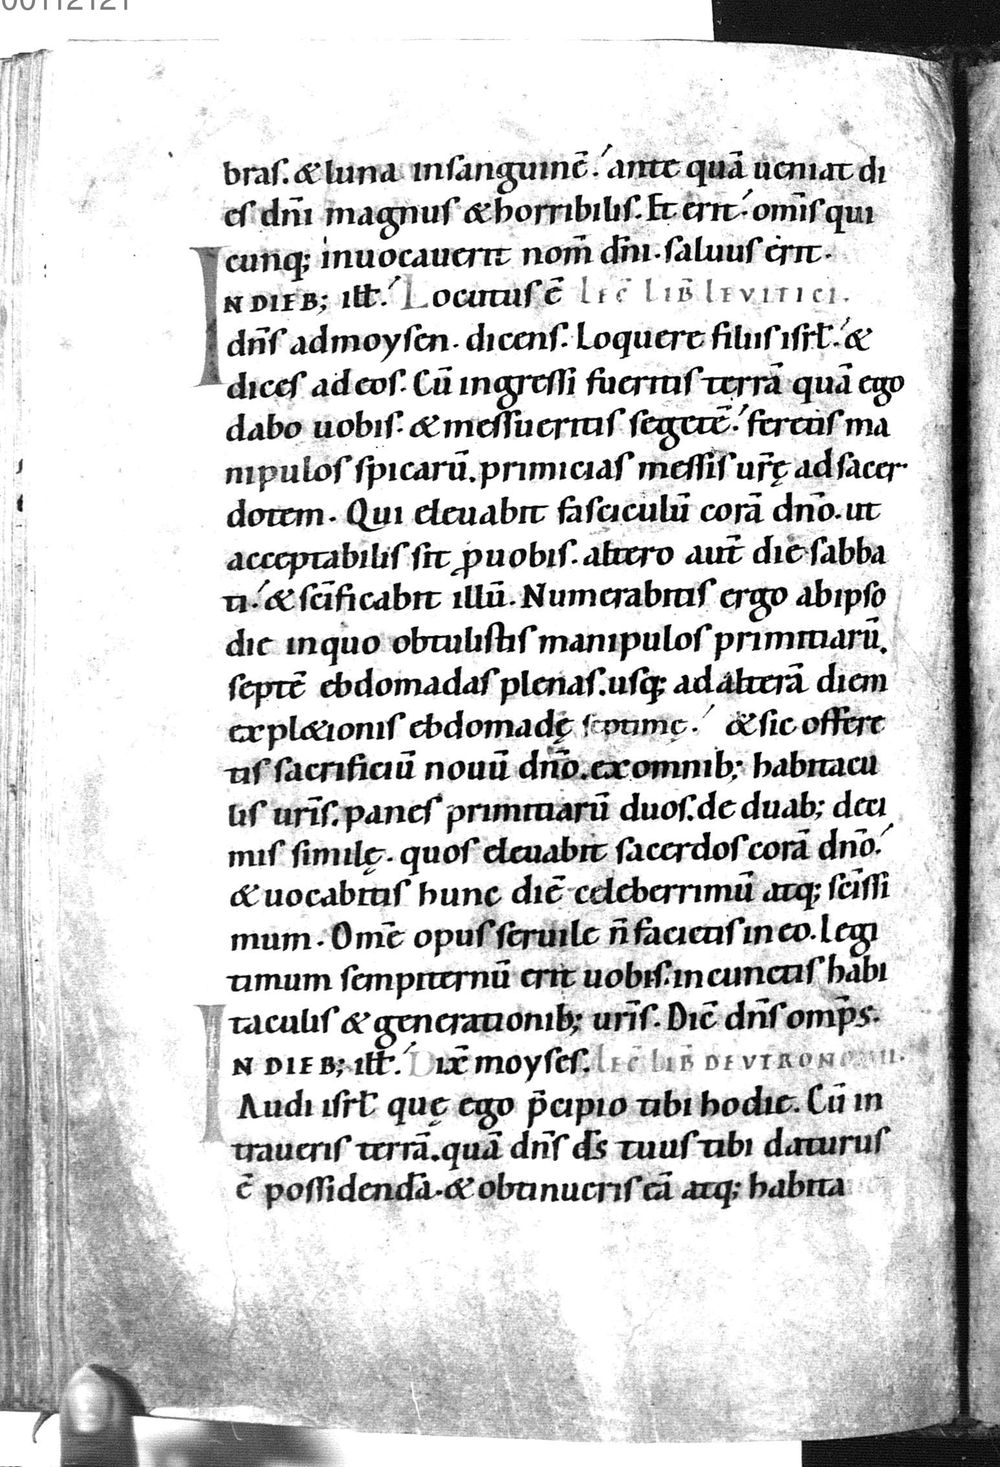 00112121
braſ. & luna inſanguinē. ante quā ueniat di
eſ dn̄i magnuſ & horribiliſ. Et erit. om̄iſ qui
cunq; inuocauerit nom̄ dn̄i. ſaluuſ erit.
IN DIEB; ill̄. Locutuſ ē LEC̄ LIB̄ LEVITICI.
dn̄ſ admoyſen. dicenſ. Loquere filiiſ iſrl̄. &
diceſ ad eoſ. Cū ingreſſi fueritiſ terrā quā ego
dabo uobiſ. & meſſueritiſ ſegetē. feretiſ ma
nipuloſ ſpicarū. primiciaſ meſſiſ ur̄ę ad ſacer
dotem. Qui eleuabit faſciculū corā dn̄o. ut
acceptabiliſ ſit ꝓ uobiſ. altero aut̄ die ſabba
ti. & ſc̄ificabit illū. Numerabitiſ ergo abipſo
die inquo obtuliſtiſ manipuloſ primitiarū.
ſeptē ebdomadaſ plenaſ. uſq; ad alterā diem
expl&ioniſ ebdomadę ſeptimę. & ſic offere
tiſ ſacrificiū nouū dn̄o. ex omnib; habitacu
liſ ur̄iſ. paneſ primitiarū duoſ. de duab; deci
miſ ſimilę. quoſ eleuabit ſacerdoſ corā dn̄o.
& uocabitiſ hunc diē celeberrimū atq; ſc̄iſſi
mum. Om̄e opuſ ſeruile n̄ facietiſ in eo. Legi
timum ſempiternū erit uobiſ. in cunctiſ habi
taculiſ & generationib; ur̄iſ. Dic̄ dn̄ſ omp̄ſ.
IN DIEB; ill̄. Dix̄ moyſeſ. LEC̄ LIB̄ DEVTRONOMII.
Audi iſrl̄ quę ego p̄cipio tibi hodie. Cū in
traueriſ terrā. quā dn̄ſ d̄ſ tuuſ tibi daturuſ
ē poſſidendā. & obtinueriſ eā atq; habita